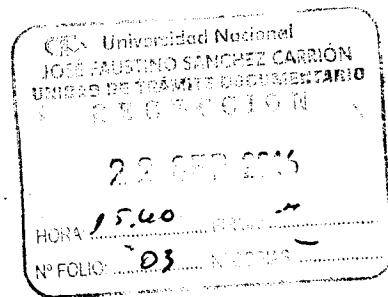 Universidad Nacional
JOSÉ FAUSTINO SANCHEZ CARRIÓN
UNIDAD DE TRÁMITE DOCUMENTARIO
RECEPCION
22 SEP 2016
HORA: 15.40
Nº FOLIO: 03